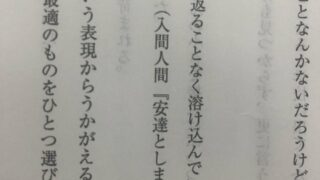 ことなんかないだろうけど
返ることなく溶け込んで
(入間人間『安達としま
いう表現からうかがえる
最適のものをひとつ選び